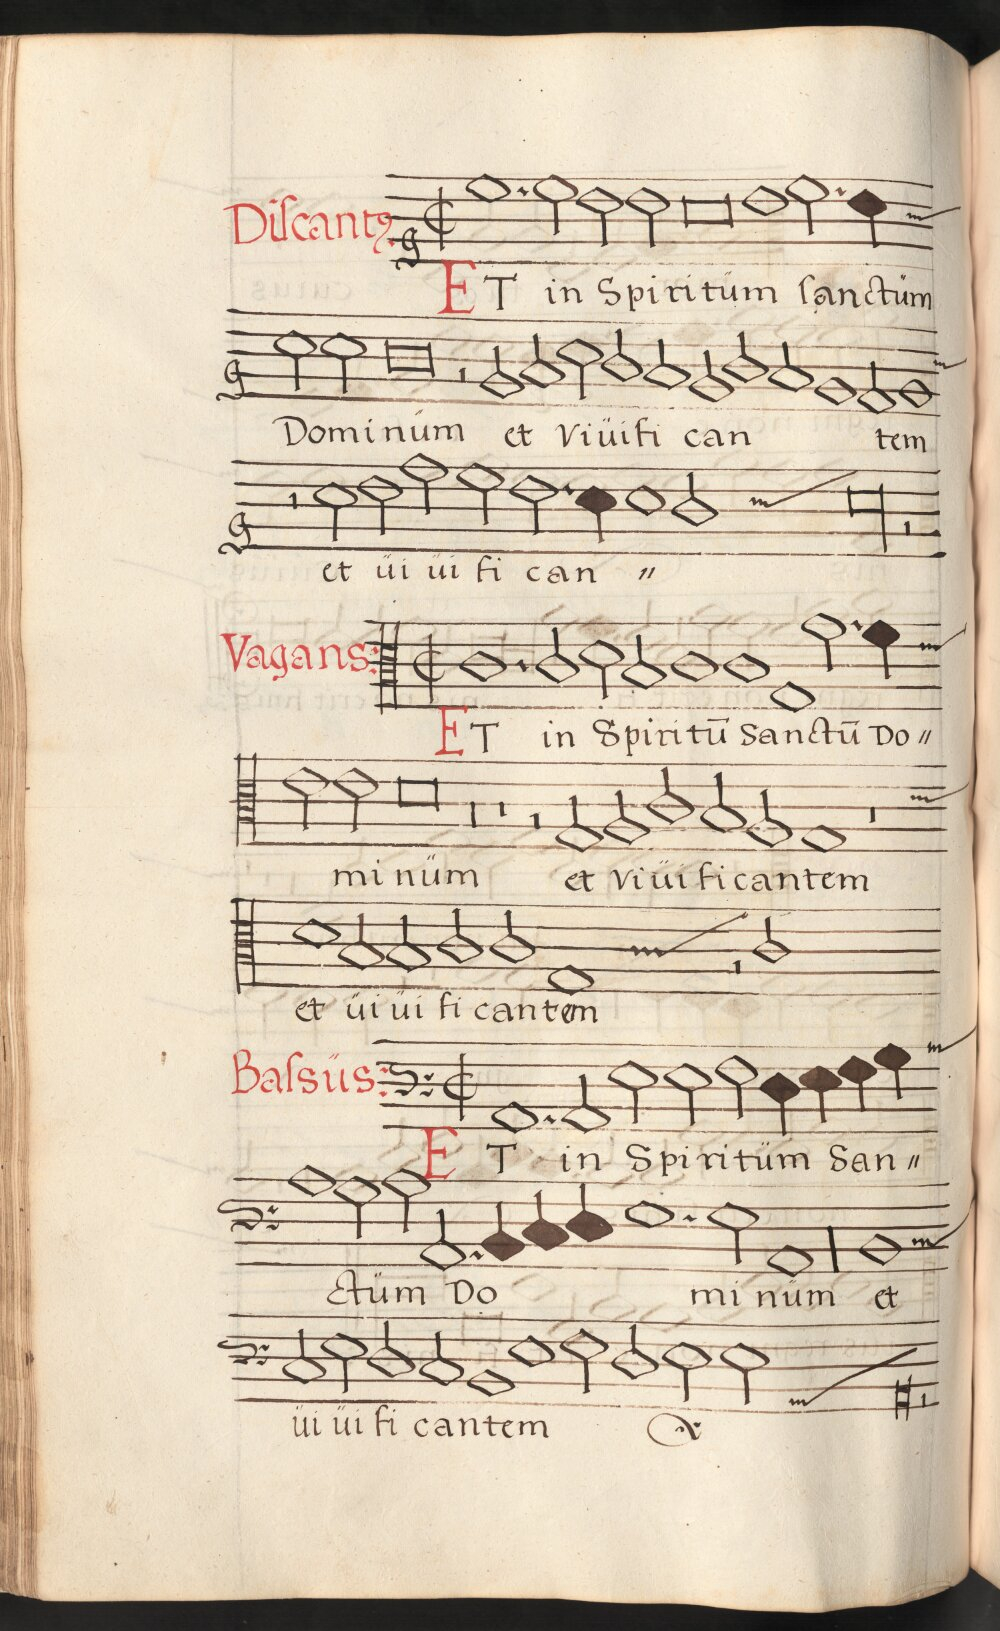 Diſcantꝰ.
ET in Spiritüm ſanctüm
Dominüm et viüifi can tem
et üi üi fi can „
Vagans:
ET in Spiritū Sanctū Do„
mi nüm et viüi ficantem
et üi üi fi cantem
Baſsüs:
ET in Spiritüm San„
ctüm Do mi nüm et
üi üi fi cantem